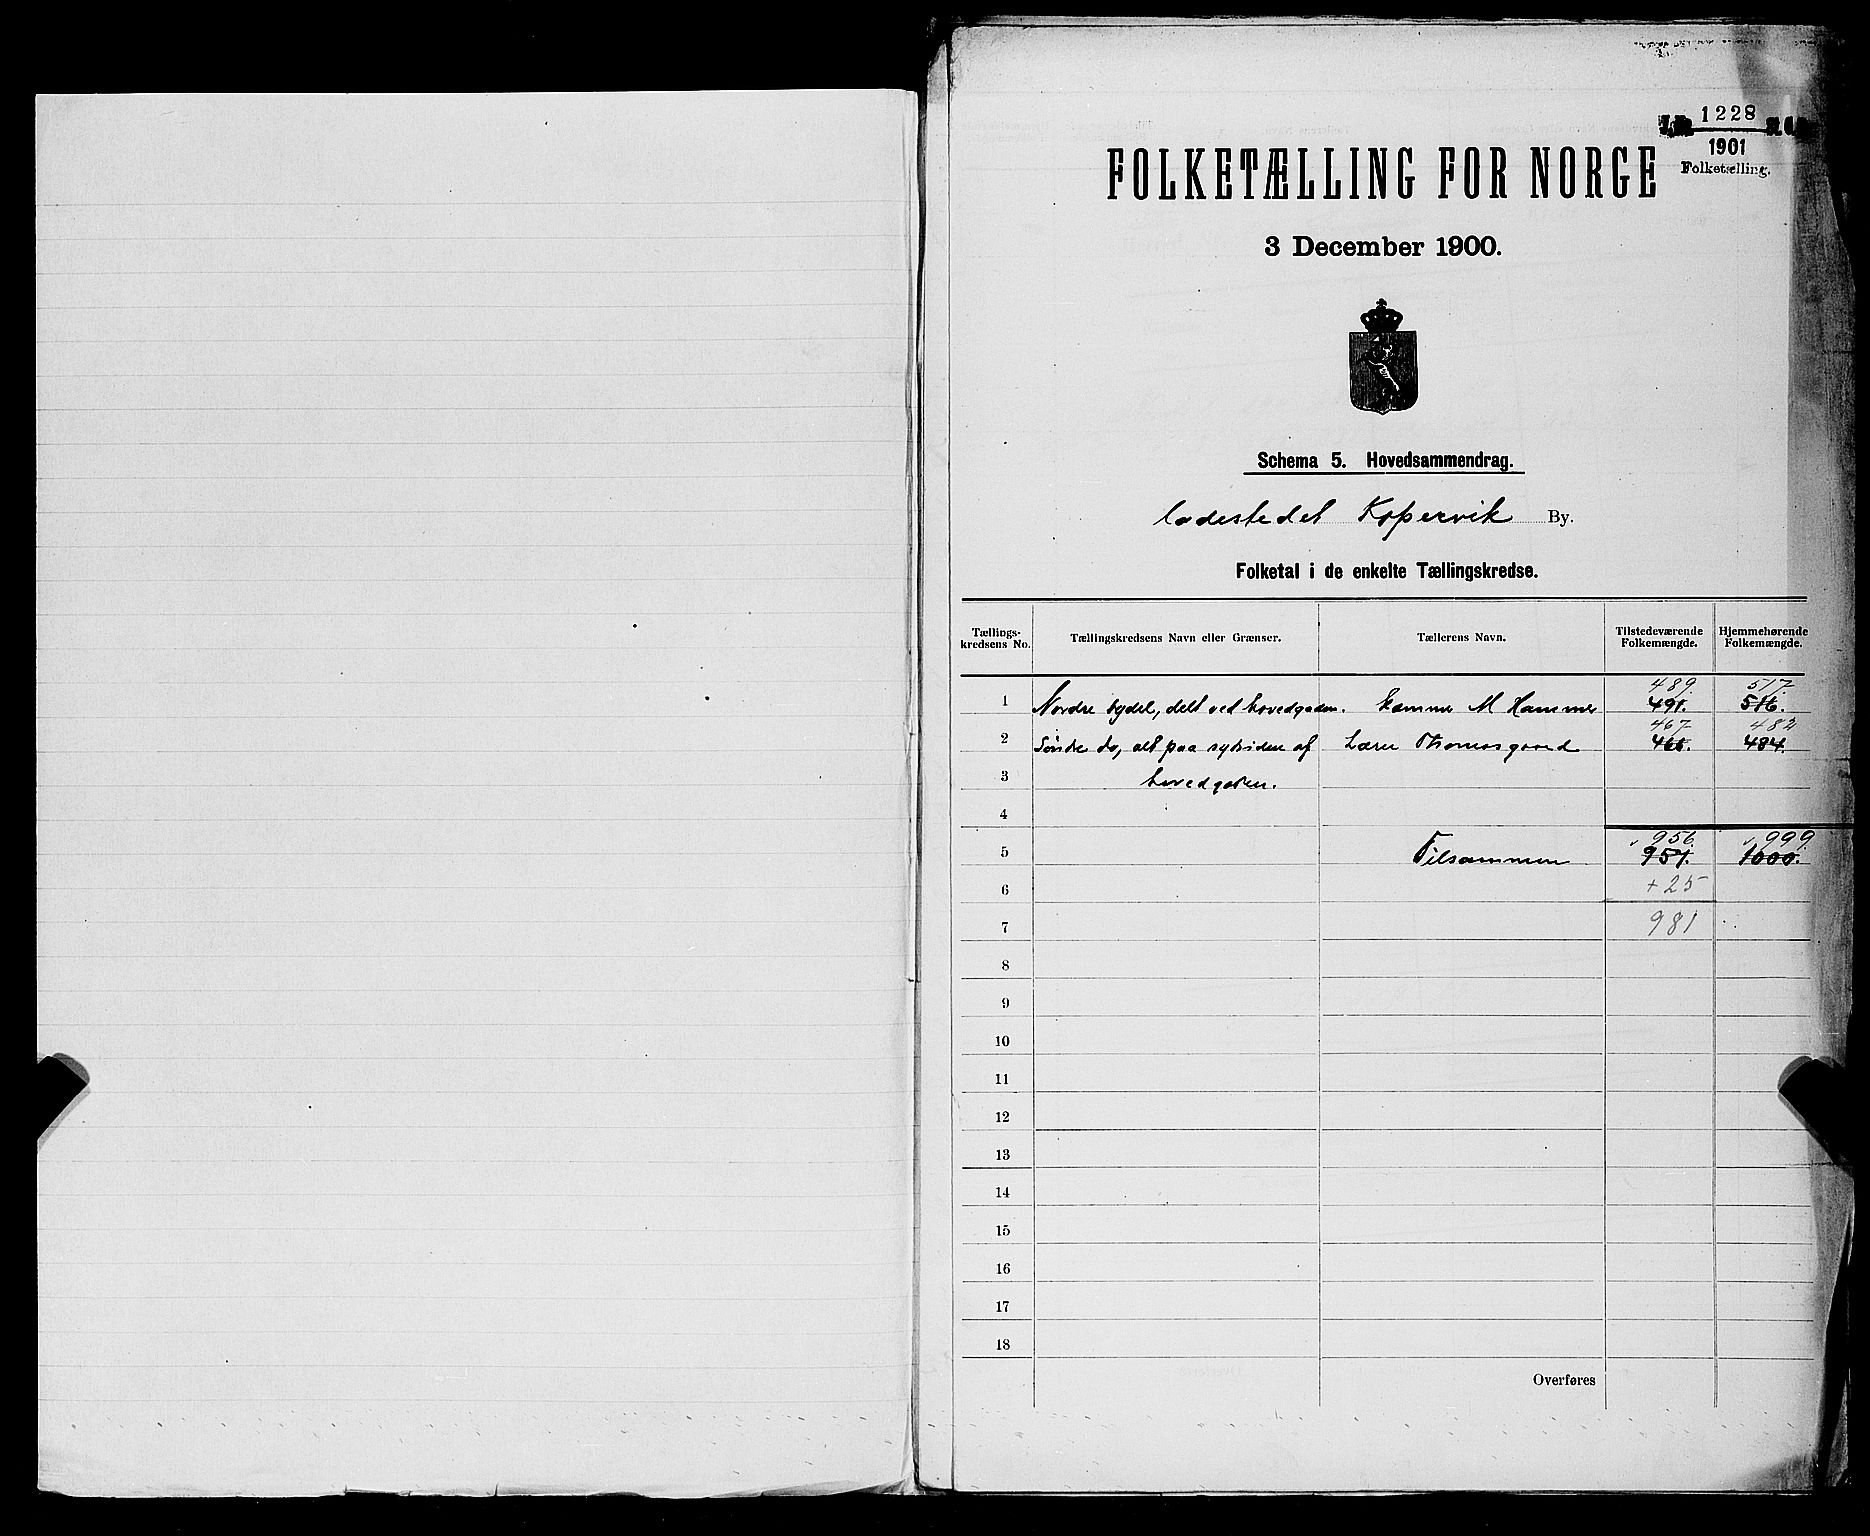 1228
1901
Folketælling.
FOLKETÆLLING FOR NORGE
3 December 1900.
Schema 5. Hovedsammendrag.
ladestedet Kopervik By.
Folketal i de enkelte Tællingskredse.
Tællings-kredsens No. Tællingskredsens Navn eller Grænser. Tællerens Navn. Tilstedeværende Folkemængde. Hjemmehørende Folkemængde.
489. 517.
1 Nordre bydel, delt ved hovedgaden. M Hammer 491. 516.
467. 482
2 Søndre do, alt paa sydsiden af Lærer Thomasgaard 484.
3 hovedgaden.
4
956. 999
5 Tilsammen 957. 1000.
6 + 25
7 981
8
9
10
11
12
13
14
15
16
17
18
Overføres